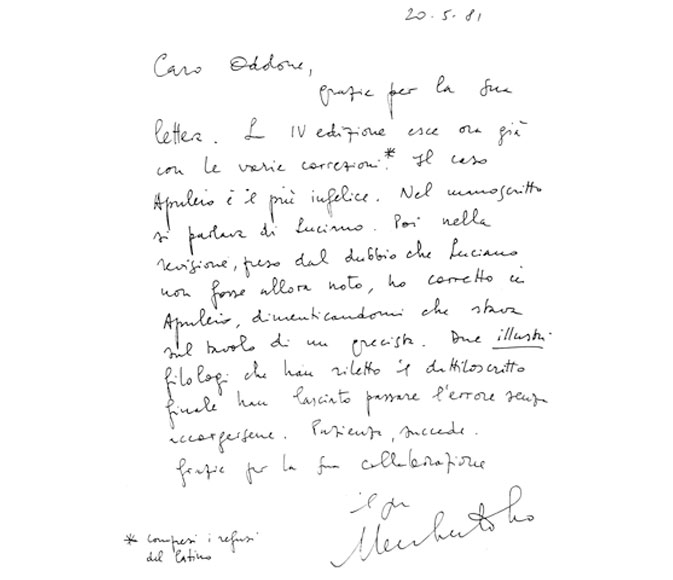 20.5.81
Caro Oddone,
grazie per la sua
lettera. La IV edizione esce ora già
con le varie correzioni.* Il caso
Apuleio è il più infelice. Nel manoscritto
si parlava di Luciano. Poi nella
revisione, preso dal dubbio che Luciano
non fosse allora noto, ho corretto in
Apuleio, dimenticandomi che stava
sul tavolo di un grecista. Due illustri
filologi che han riletto il dattiloscritto
finale han lasciato passare l'errore senza
accorgersene. Pazienza, succede.
Grazie per la sua collaborazione
il suo
Umberto Eco
* compresi i refusi
del latino